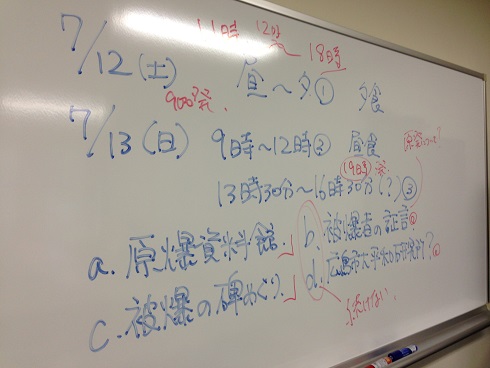 11時 12時 18時
7/12(土) 昼〜夕① 夕食
9:00発
7/13(日) 9時〜12時② 昼食
19時
13時30分〜16時30分(?)③
a. 原爆資料館 b. 被爆者の証言
c. 被爆の碑めぐり d. 広島市大平和研究所?
続けない